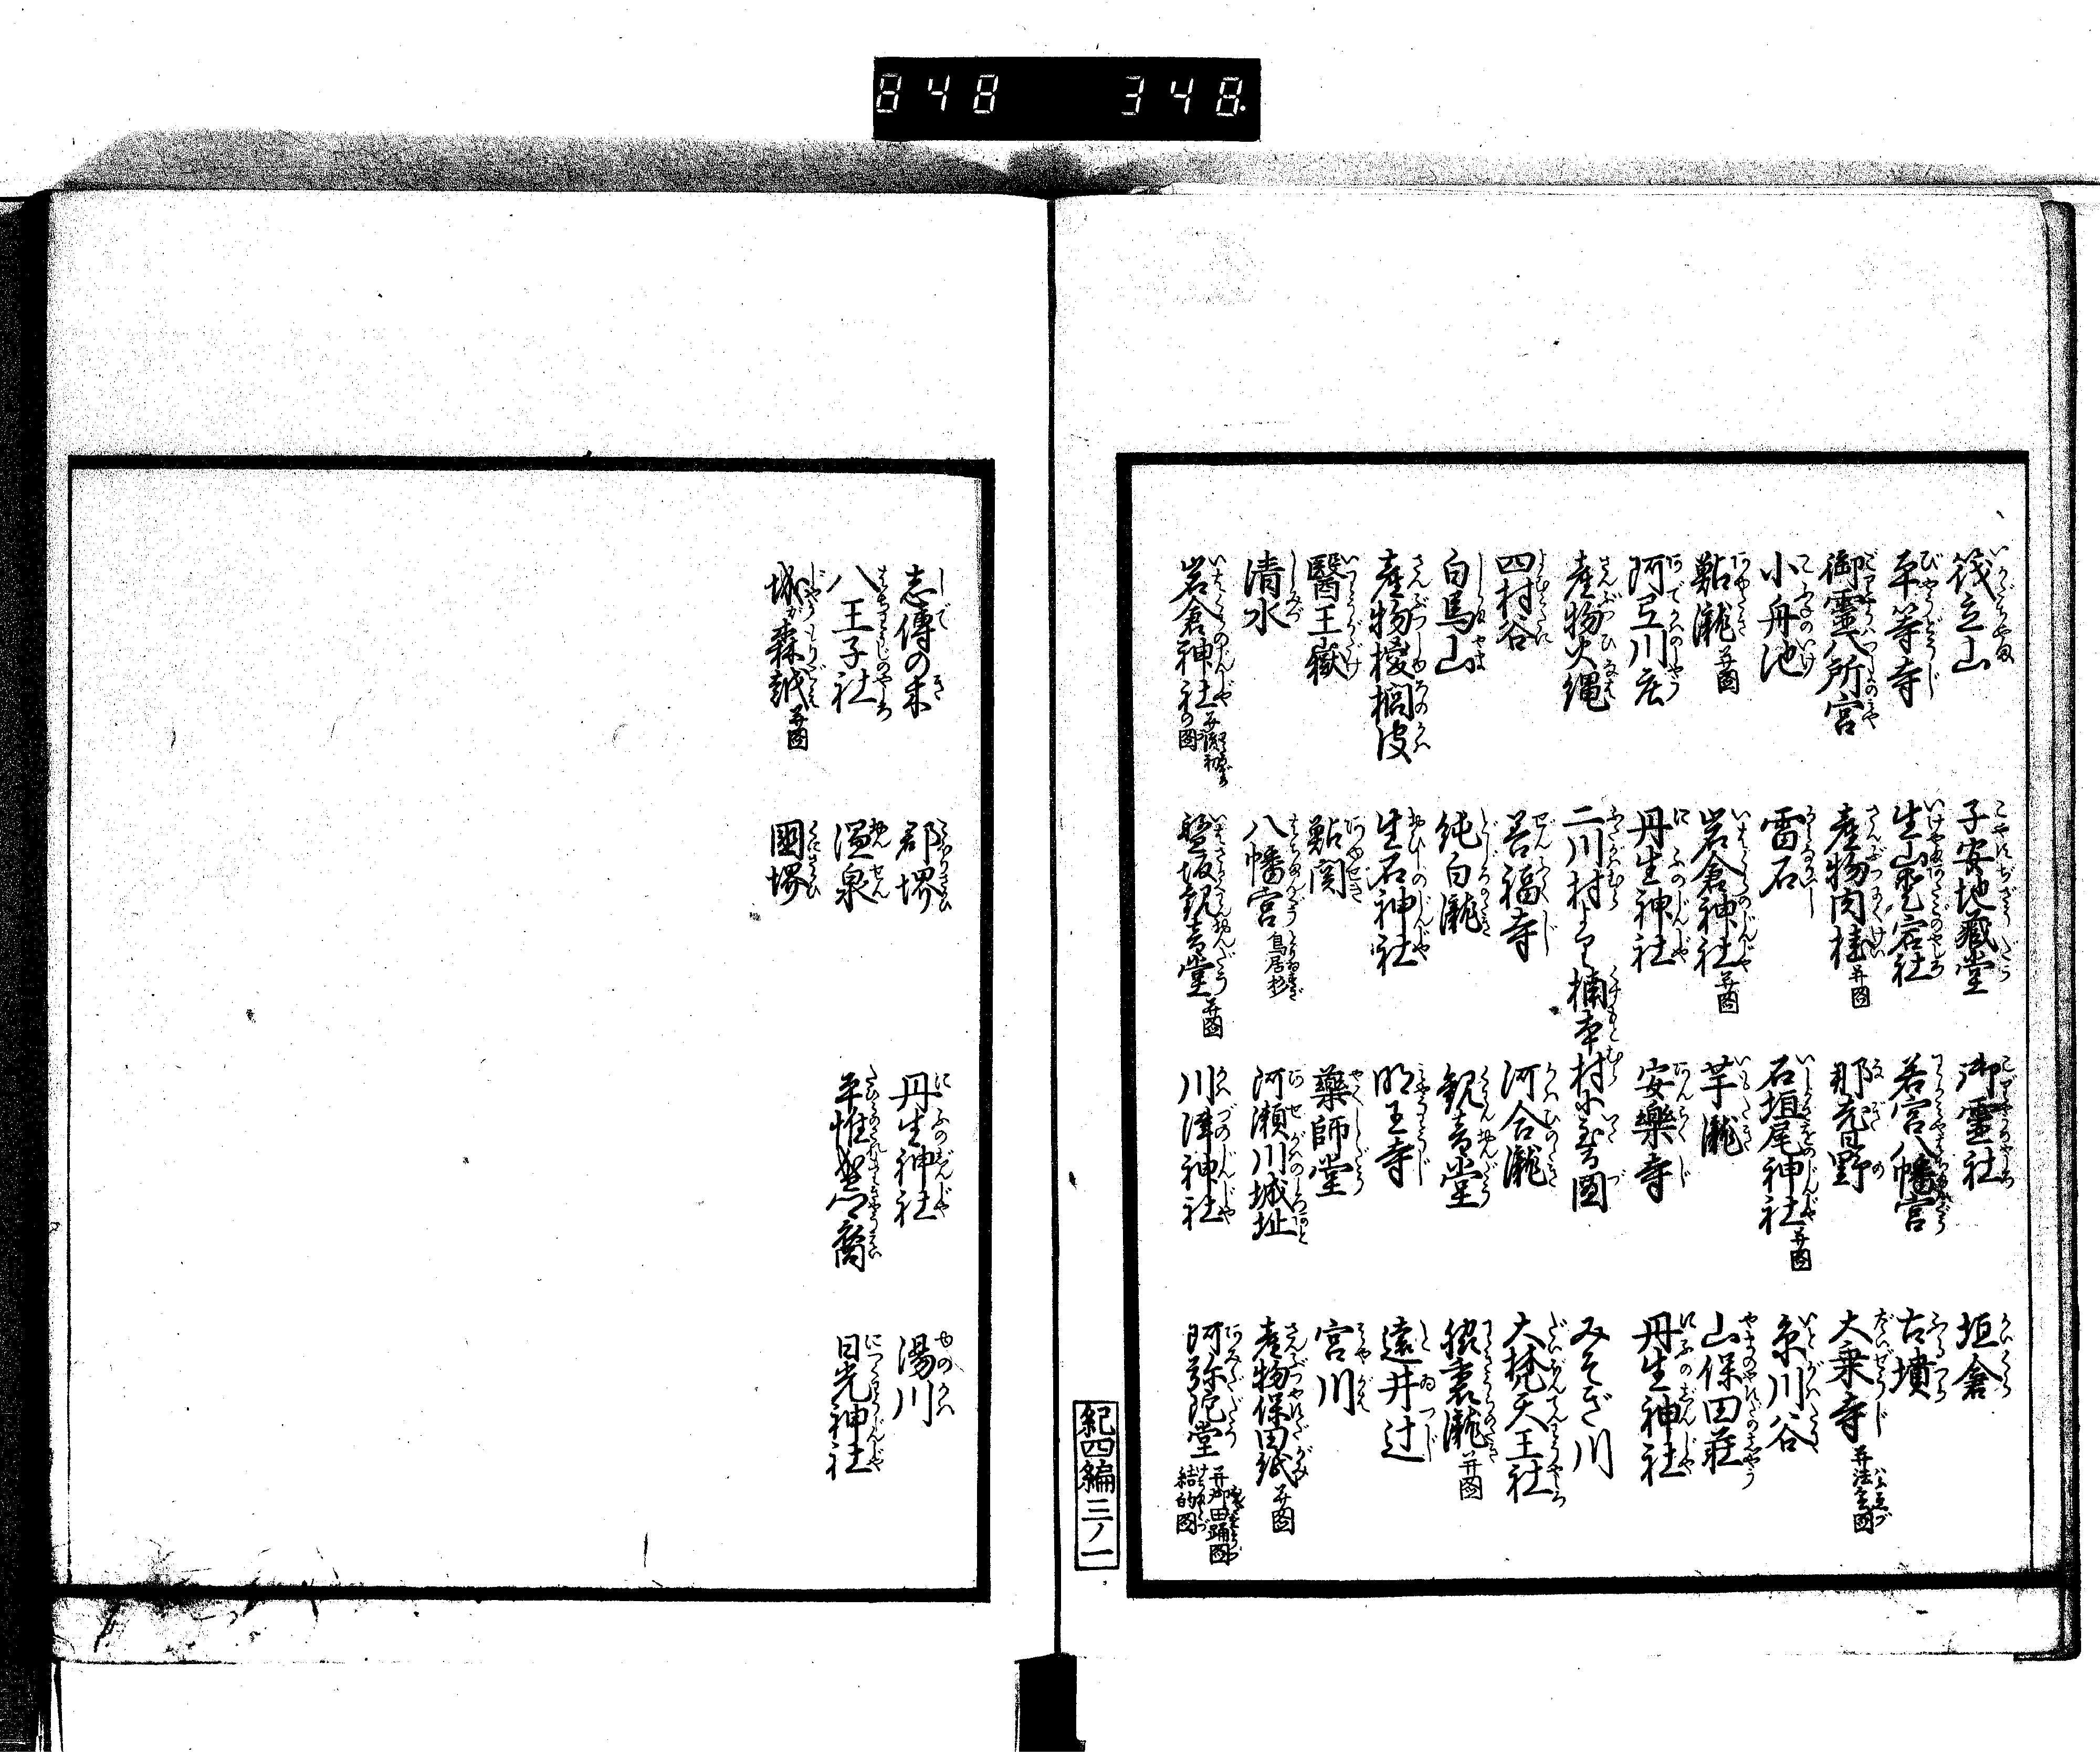 848 348
筏立山 子安地蔵堂 御霊社 垣倉
平等寺 生山愛宕社 若宮八幡宮 古墳
御霊八所宮 産物肉桂并図 那耆野 大乗寺并法会図
小舟池 雷石 石垣尾神社并図 糸川谷
鮎瀧并図 岩倉神社并図 芋瀧 山保田荘
阿弖川荘 丹生神社 安楽寺 丹生神社
産物火縄 二川村より楠本村に至る図 みそぎ川
四村谷 善福寺 河合瀧 大梵天王社
白馬山 純白瀧 観音堂 猨裏瀧并図
産物椶櫚皮 生石神社 明王寺 遠井辻
醫王嶽 鮎関 薬師堂 宮川
清水 八幡宮鳥居杉 河瀬川城址 産物保田紙并図
岩倉神社 盤坂観音堂并図 川津神社 阿弥陀堂并御田踊図 結的図
紀四編三ノ一
志傳の木 郡堺 丹生神社 湯川
八王子社 温泉 平惟盛後裔 日光神社
城が森越并図 國堺